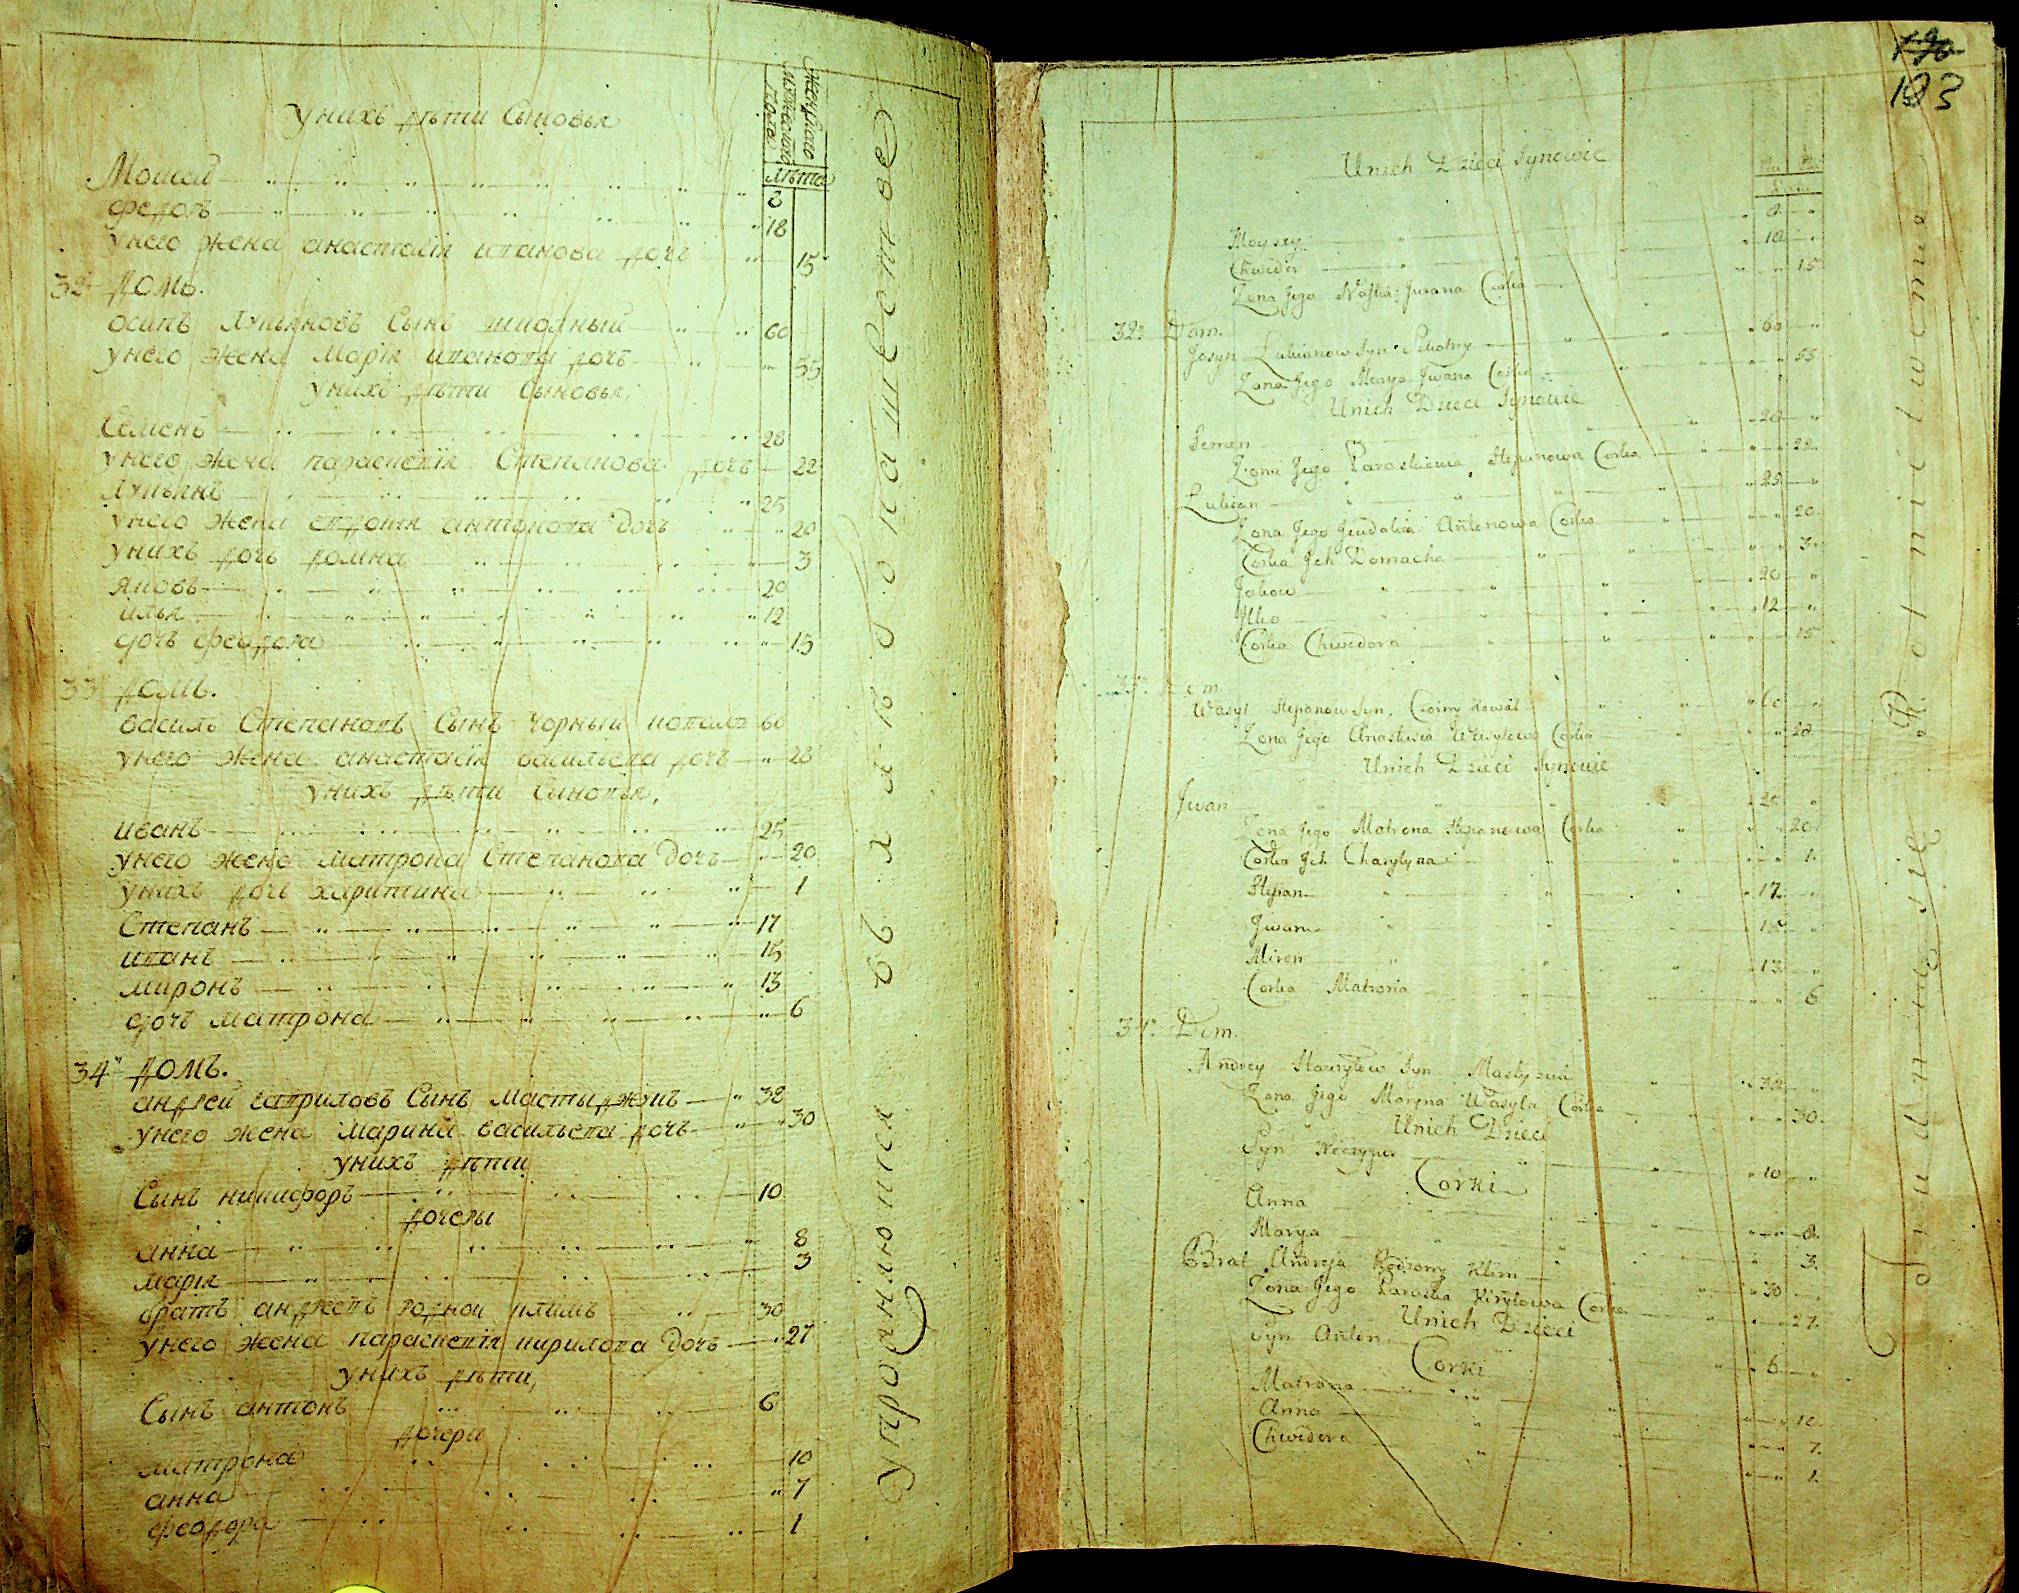 женскаго
мужескаго
пола
лѣта
унихъ дѣти Сыновья
Мосѣй 8
федоръ 18
унего жена анастасія иванова дочь 15
32й домъ.
осипъ лукьяновъ Сынъ 60
унего жена марія иванова дочь 55
унихъ дѣти Сыновья
Семенъ 28
унего жена параскевія Степанова дочь 22
лукьянъ 25
унего жена евдокия антонова дочь 20
унихъ дочь домна 3
яковъ 20
илья 12
дочь феодора 15
33й домъ.
василь Степановъ Сынъ чорный коваль 60
унего жена анастасія васильева дочь 28
унихъ дѣти Сыновья,
иванъ 25
унего жена матрона Степанова дочь 20
унихъ дочь харитина 1
Степанъ 17
иванъ 15
миронъ 13
дочь матрона 6
34й домъ.
андрей гавриловъ Сынъ 38
унего жена марина васильева дочь 30
унихъ дѣти
Сынъ никифоръ 10
дочеры
анна 8
марія 3
братъ андреевъ родной климъ 30
унего жена параскевія кирилова дочь 27
унихъ дѣти,
Сынъ антонъ 6
дочери
матрона 10
анна 7
феодора 1
упражняются въ хлѣбопашестве
190
193
Unich Dzieci Synowie
Moysey 8
Chwedor 18
Zona Jego Nastia Jwana Corka 15
32. Dom.
Josyp Lukianow Syn 60
Zona Jego Marya Jwana Corka 55
Unich Dzieci Synowie
Semen 28
Zona Jego Paraskiewia Stepanowa Corka 22
Lukian 25
Zona Jego Antonowa Corka 20
Corka Jch Domacha 3
Jakow 20
Jlko 12
Corka Chwedora 15
33. Dom.
Wasyl Stepanow Syn, Czorny Kowal 60
Zona Jego Anastasia Wasylowa Corka 28
Unich Dzieci Synowie
Jwan 25
Zona Jego Matrona Stepanowa Corka 20
Corka Jch Charytyna 1
Stepan 17
Jwan 15
Miron 13
Corka Matrona 6
34. Dom.
Andrey Hawryłow Syn 38
Zona Jego Maryna Wasyla Corka 30
Unich Dzieci
Syn Neczypor 10
Corki
Anna 8
Marya 3
Brat Andreja Rodzony Klim 30
Zona Jego Paraska Kiryłowa Corka 27
Unich Dzieci
Syn Anton 6
Corki
Matrona 10
Anna 7
Chwedora 1
Trudnią się Rolnictwem